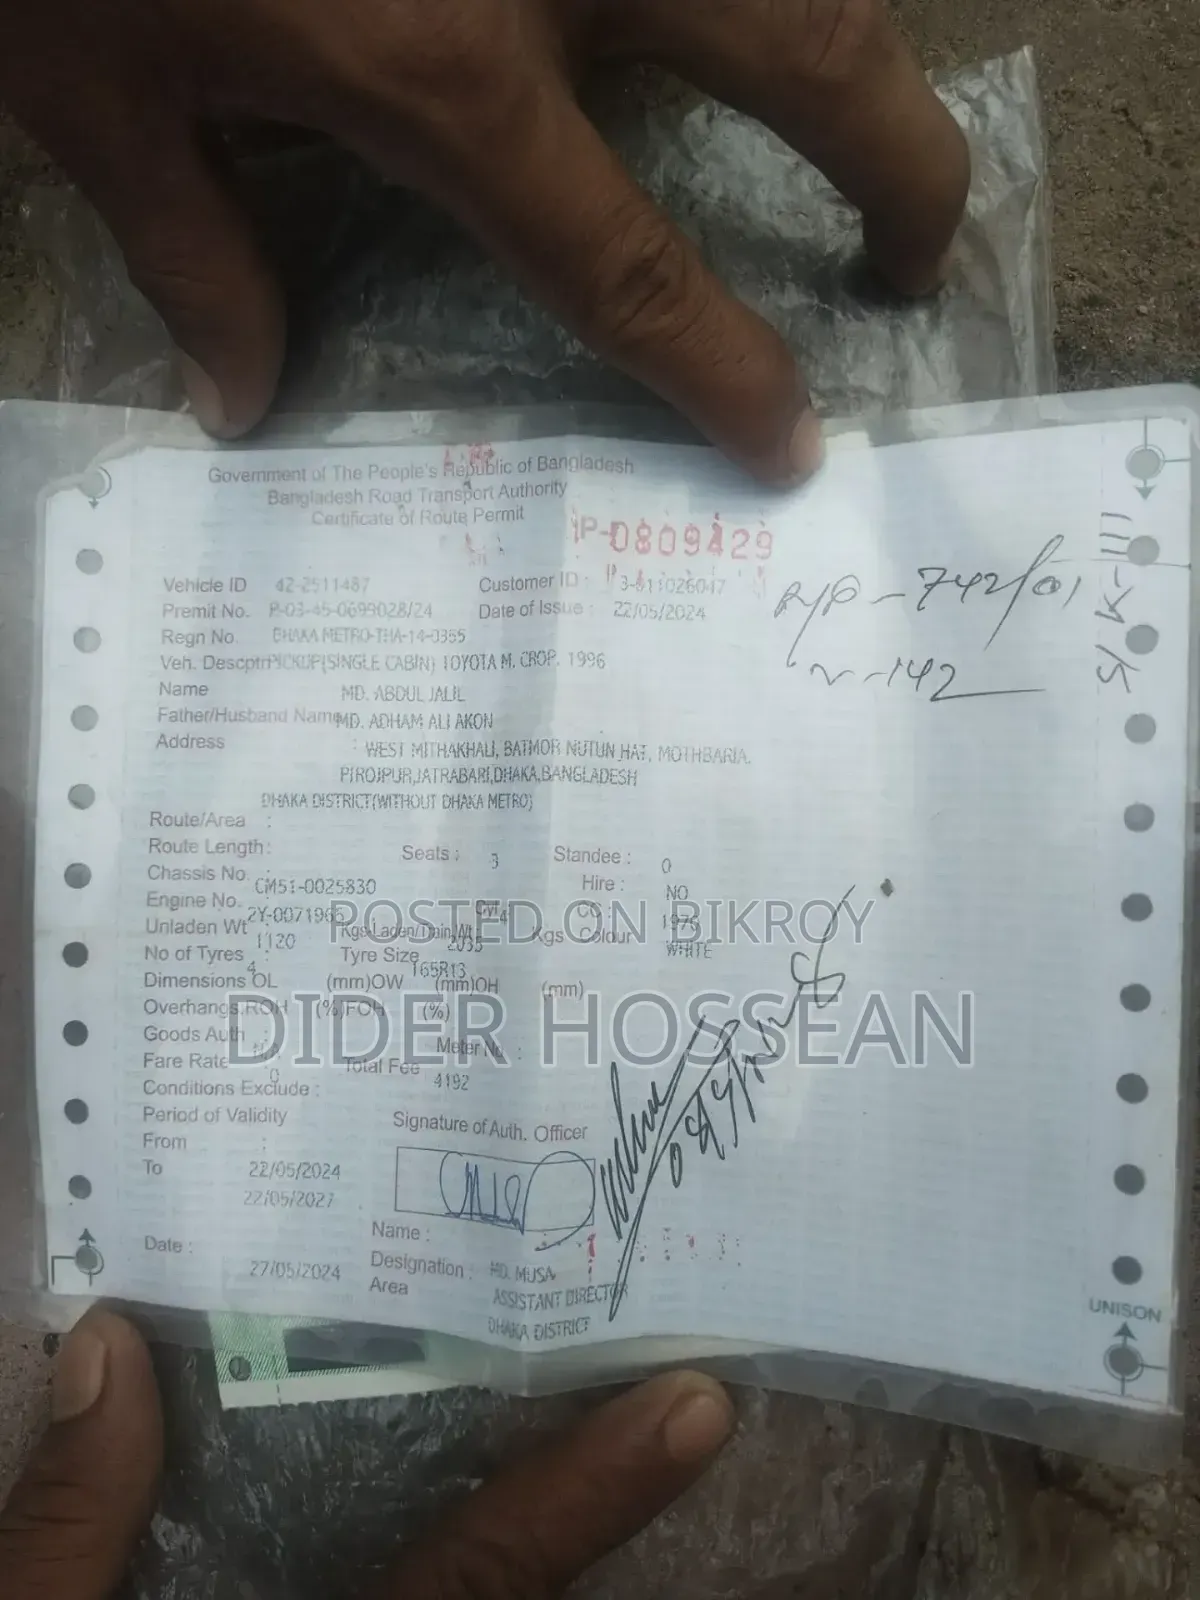 Government of The People's Republic of Bangladesh
Bangladesh Road Transport Authority
Certificate of Route Permit
P-0809429
Vehicle ID 42-2511487 Customer ID : 3-611026047
Premit No. P-03-45-0699028/24 Date of Issue : 22/05/2024
Regn No. DHAKA METRO-THA-14-0355
Veh. Descptn PICKUP(SINGLE CABIN) TOYOTA M. CROP. 1996
Name MD. ABDUL JALIL
Father/Husband Name MD. ADHAM ALI AKON
Address : WEST MITHAKHALI, BATMOR NUTUN HAT, MOTHBARIA,
PIROJPUR,JATRABARI,DHAKA,BANGLADESH
DHAKA DISTRICT(WITHOUT DHAKA METRO)
Route/Area :
Route Length : Seats : 3 Standee : 0
Chassis No. : CM51-0025830 Hire : NO
Engine No. : 2Y-0071966 Cyl 4 CC : 1976
Unladen Wt 1120 Kgs Laden/Train Wt : 2035 Kgs Colour WHITE
No of Tyres : 4 Tyre Size 165R13
Dimensions OL (mm)OW (mm)OH (mm)
Overhangs.ROH (%)FOH (%)
Goods Auth :
Fare Rate 0 Meter No :
Conditions Exclude : Total Fee 4192
Period of Validity
From : 22/05/2024
To 22/05/2027
Signature of Auth. Officer
Date : 27/05/2024
Name : MD. MUSA
Designation : ASSISTANT DIRECTOR
Area DHAKA DISTRICT
742/01
142
UNISON
POSTED ON BIKROY
DIDER HOSSEAN